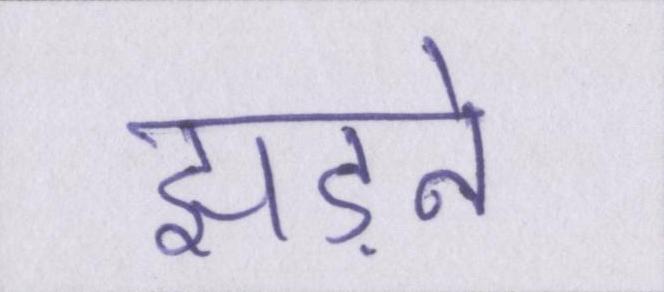 झड़ने